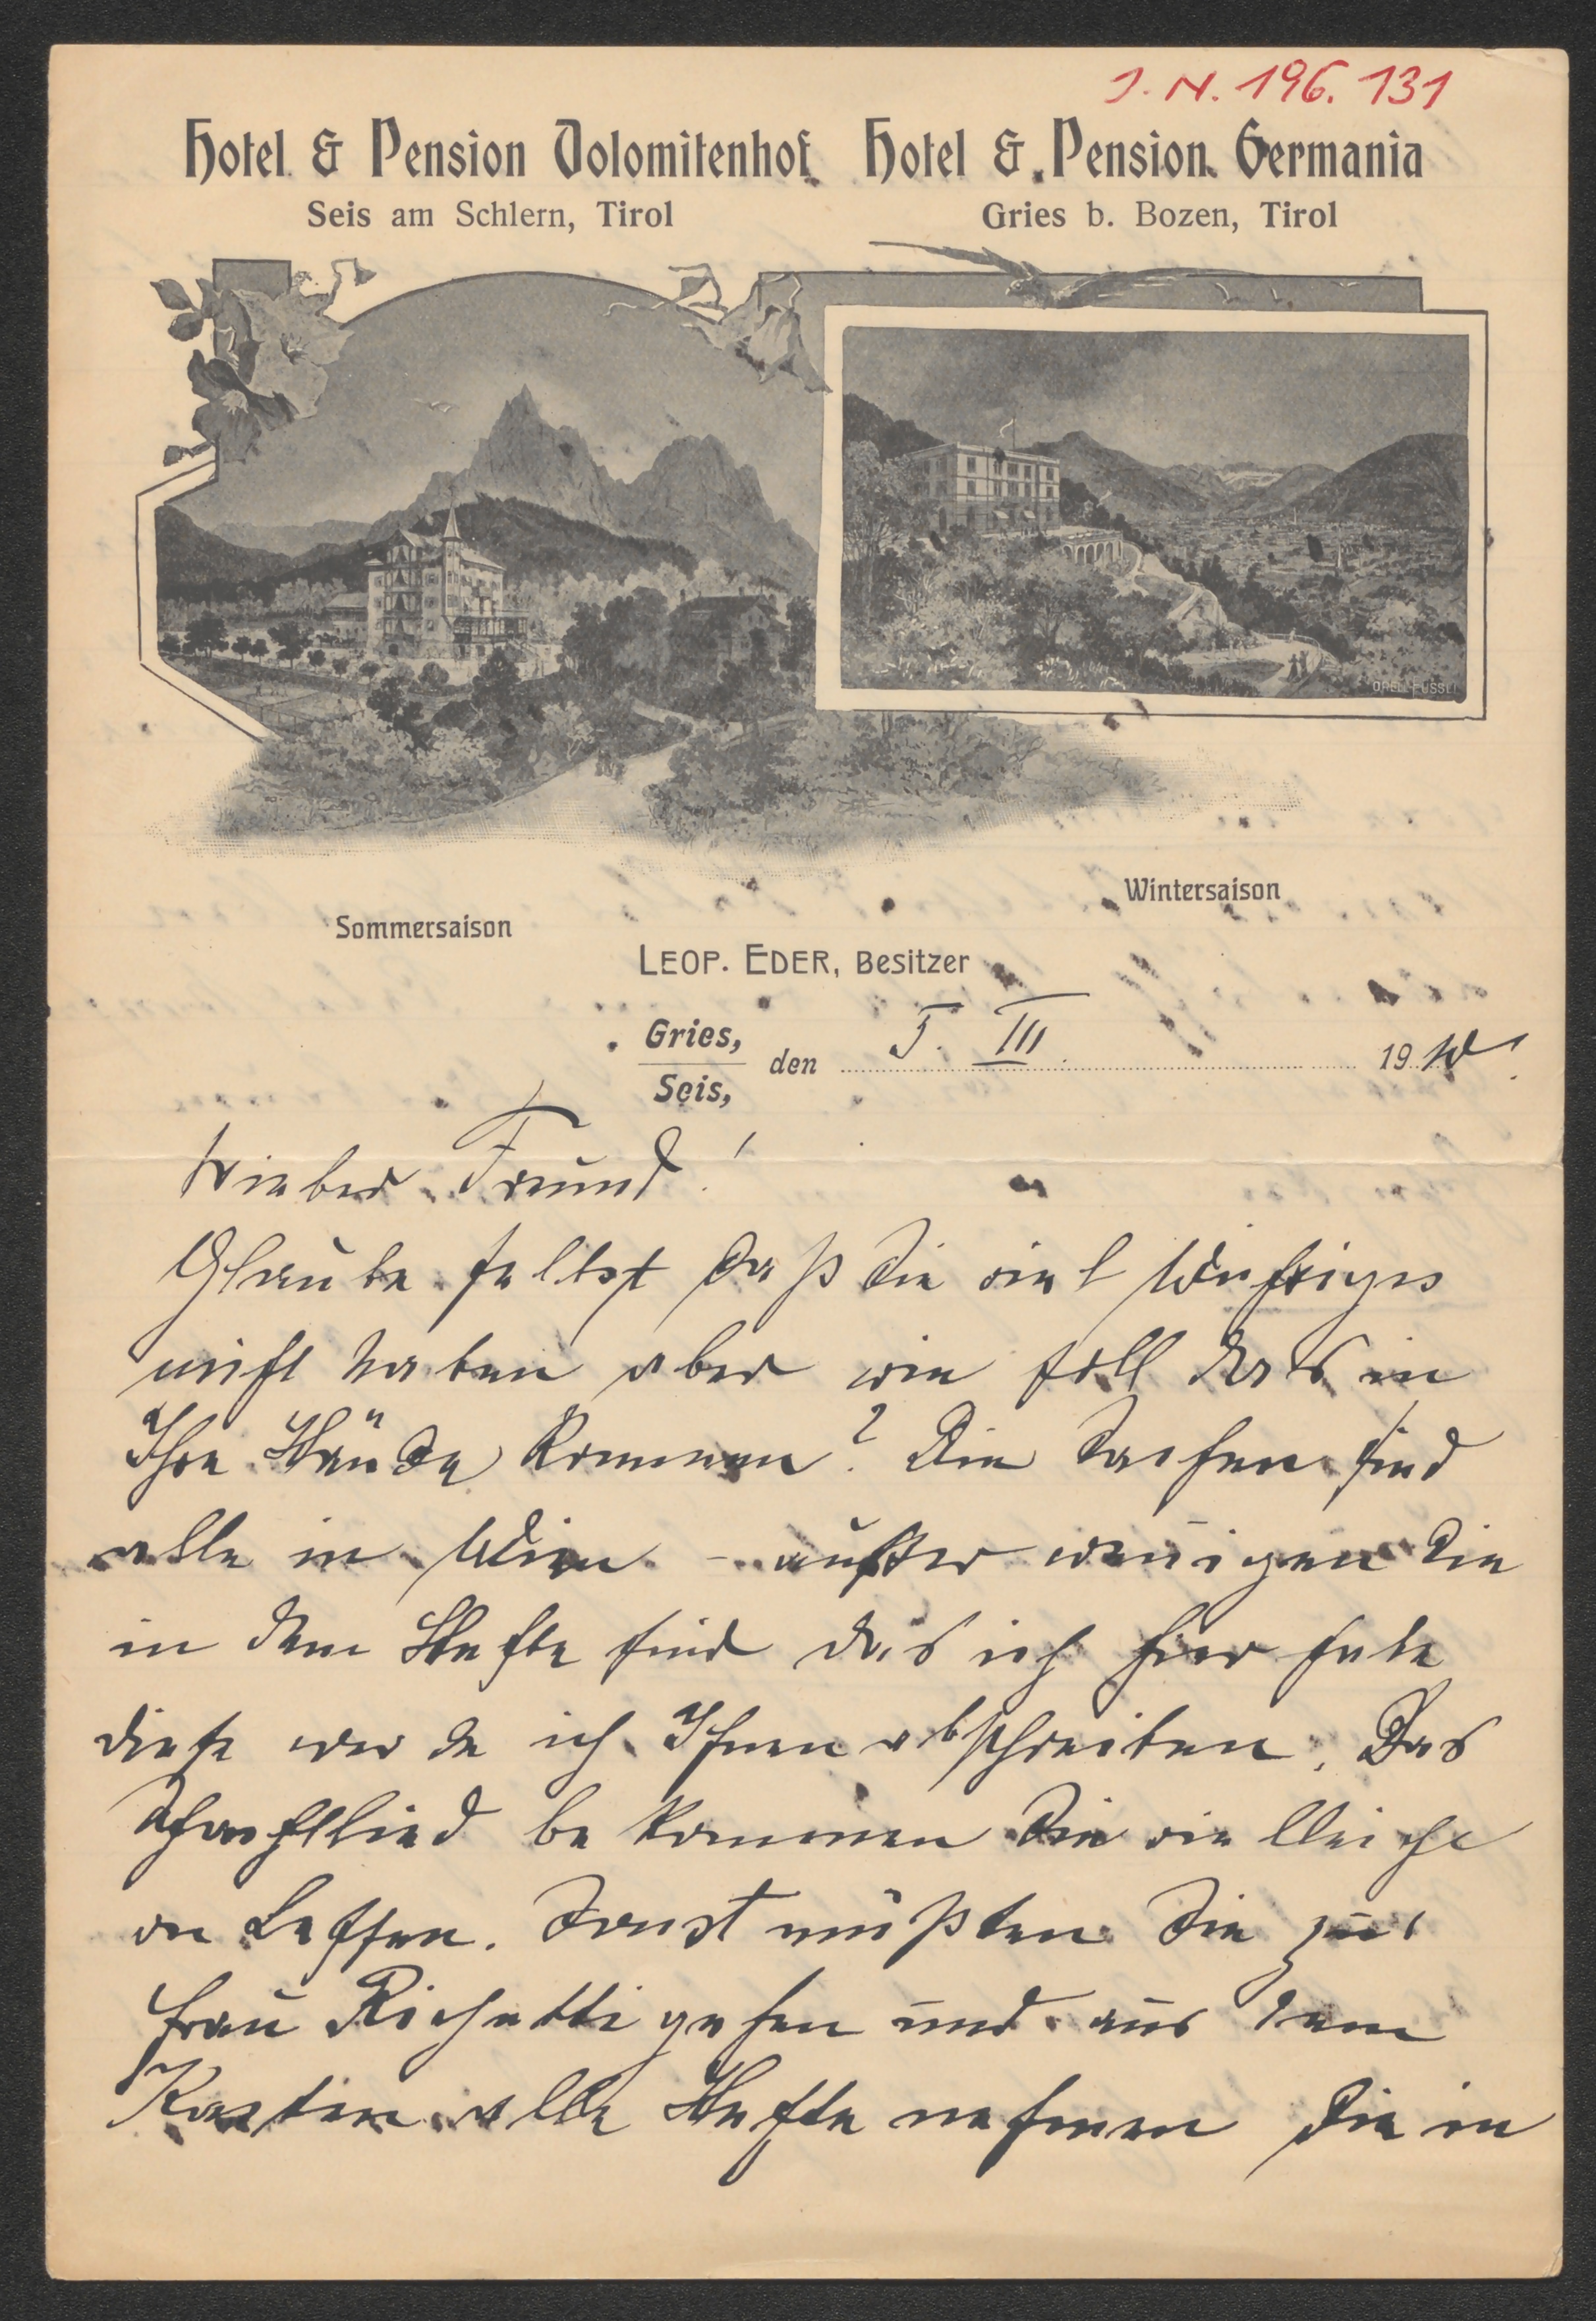 J. N. 196. 131
Hotel & Pension Dolomitenhof Hotel & Pension Germania
Seis am Schlern, Tirol Gries b. Bozen, Tirol
ORELL FÜSSLI
Wintersaison
Sommersaison
LEOP. EDER, Besitzer
Gries,
Seis, den 5. III. 1910
Lieber Freund!
Glaube selbst daß Sie viel Wichtiges
nicht haben aber wie soll das in
Ihre Hände kommen? Die Sachen sind
alle in Wien – außer wenigen die
in dem Hefte sind das ich hier habe
diese werde ich Ihnen abschreiben. Das
bekommen Sie vielleicht
von Sonst müßten Sie zur
Frau Richetti gehen und aus dem
Kasten alle Hefte nehmen die in